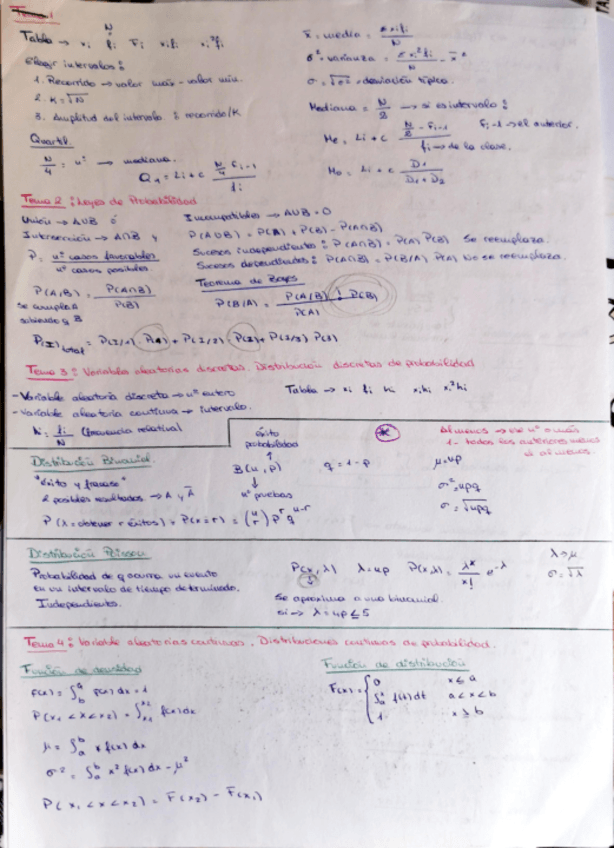 Tema 1
Tabla → xi fi Fi xifi xi²fi
N
Elegir intervalos:
1. Recorrido → valor máx - valor mín.
2. K = √N
3. Amplitud del intervalo: recorrido/K
Quartil
N/4 = nº → mediana.
Q1 = Li + c (N/4 - Fi-1)/fi
x̄ = media = Σxifi/N
σ² = varianza = Σxi²fi/N - x̄²
σ = √σ² = desviación típica.
Mediana = N/2 → si es intervalo:
Me = Li + c (N/2 - Fi-1)/fi Fi-1 → el anterior.
fi → de la clase.
Mo = Li + c D1/(D1+D2)
Tema 2: Leyes de Probabilidad
Unión → A∪B ó
Intersección → A∩B y
P = nº casos favorables / nº casos posibles.
P(A/B) = P(A∩B)/P(B)
se cumpla A
sabiendo q B
Incompatibles → A∪B = 0
P(A∪B) = P(A) + P(B) - P(A∩B)
Sucesos independientes: P(A∩B) = P(A) P(B) Se reemplaza.
Sucesos dependientes: P(A∩B) = P(B/A) P(A) No se reemplaza.
Teorema de Bayes
P(B/A) = P(A/B) · P(B) / P(A)
P(I) total = P(I/1) P(1) + P(I/2) P(2) + P(I/3) P(3)
Tema 3: Variable aleatorias discretas. Distribución discretas de probabilidad
- Variable aleatoria discreta → nº entero
- Variable aleatoria continua → intervalo.
Tabla → xi fi hi xihi xi²hi
hi = fi/N (frecuencia relativa)
Distribución Binomial
"éxito y fracaso"
2 posibles resultados → A y Ā
éxito
probabilidad
↑
B(n, p) q = 1 - p
↓
nº pruebas
Al menos → ese nº o más
1 - todos los anteriores menos
el al menos.
μ = np
σ² = npq
σ = √npq
P(A = obtener r éxitos) = P(x=r) = (n r) p^r q^n-r
Distribución Poisson
Probabilidad de q ocurra un evento
en un intervalo de tiempo determinado.
Independientes.
P(x, λ) λ = np P(x,λ) = λ^x/x! e^-λ
Se aproxima a una binomial.
si → λ = np ≤ 5
λ = μ
σ = √λ
Tema 4: Variable aleatorias continuas. Distribuciones continuas de probabilidad.
Función de densidad
f(x) = ∫ f(x) dx = 1
P(x1 < x < x2) = ∫ f(x) dx
μ = ∫ab x f(x) dx
σ² = ∫ab x² f(x) dx - μ²
P(x1 < x < x2) = F(x2) - F(x1)
Función de distribución
F(x) = { 0 x ≤ a
∫ f(t) dt a < x < b
1 x ≥ b